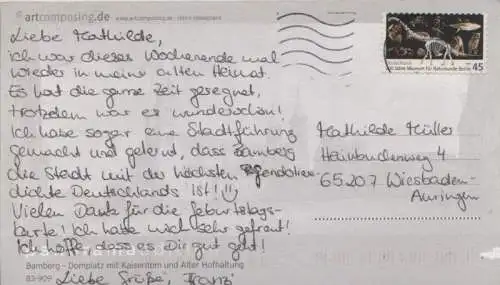 artcomposing.de
Liebe Mathilde,
ich war dieses Wochenende mal
wieder in meiner alten Heimat.
Es hat die ganze Zeit geregnet,
trotzdem war es wunderschön!
Ich habe sogar eine Stadtführung
gemacht und gelernt, dass Bamberg
die Stadt mit der höchsten
dichte Deutschlands ist! :)
Vielen Dank für die Geburtstags-
karte! Ich hatte mich sehr gefreut!
Ich hoffe, dass es Dir gut geht!
Bamberg – Domplatz mit Kaiserdom und Alter Hofhaltung
Liebe Grüße, Franzi
45
Mathilde Müller
Hainbuchenweg 4
65207 Wiesbaden-
Auringen